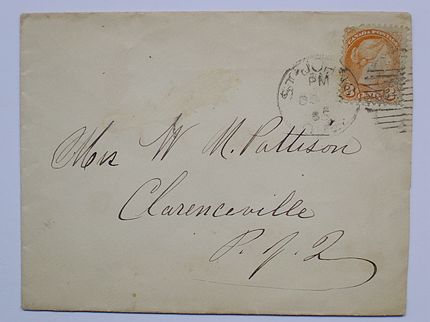 CANADA POSTAGE
3 CENTS 3
ST. JOH
PM
Mrs W. M. Pattison
Clarenceville
P. Q.